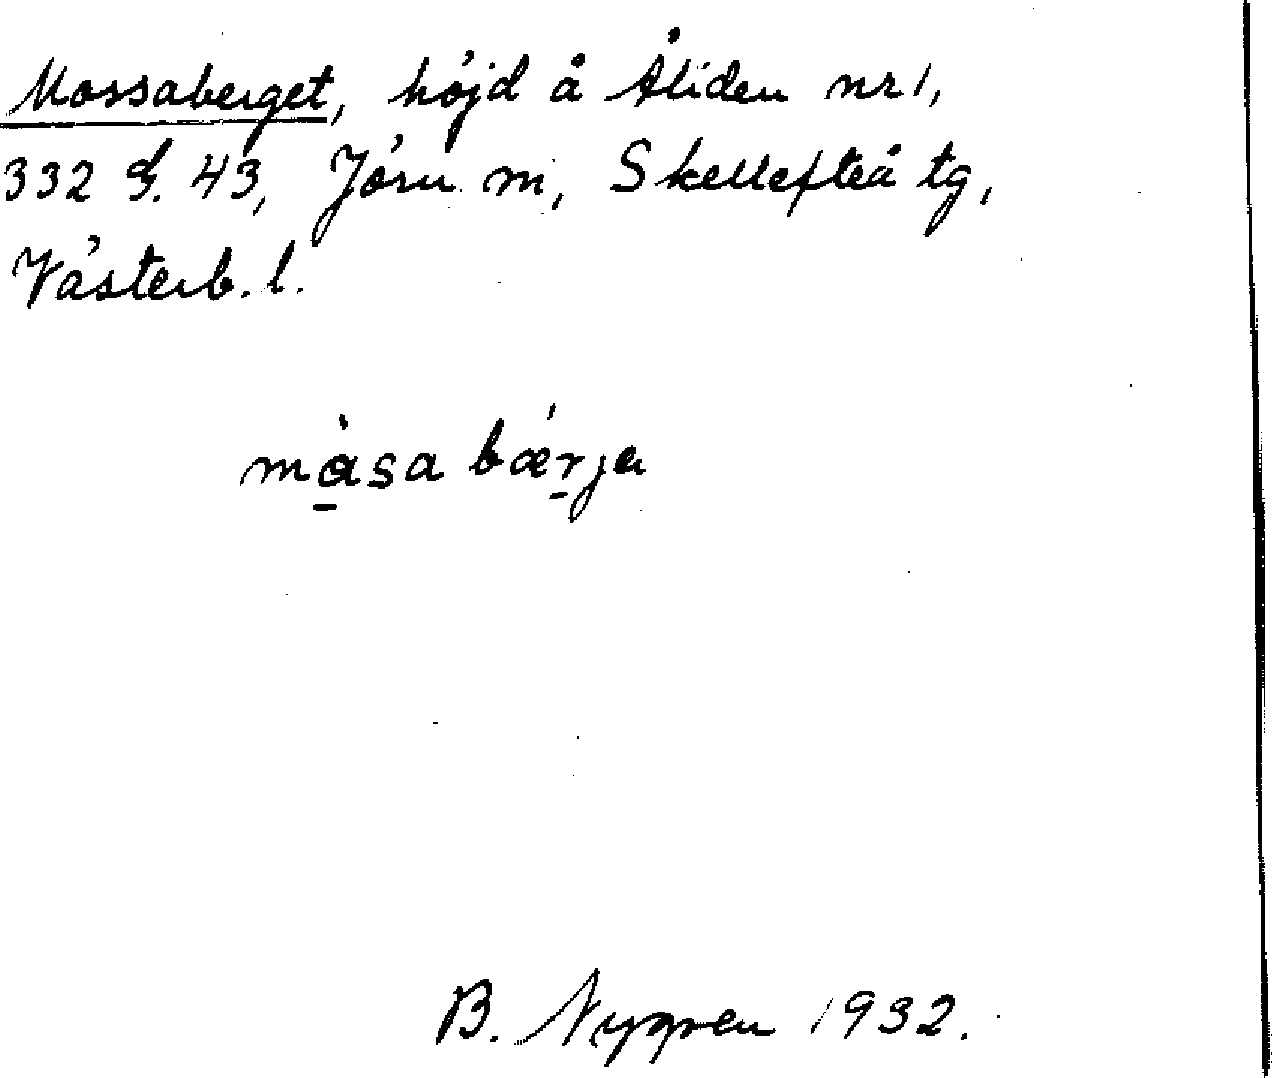 Mossaberget, höjd å Åliden nr 1,
332 G. 43, Jörn m, Skellefteå tg,
Västerb. l.
mása bǽrja
B. Nygren 1932.